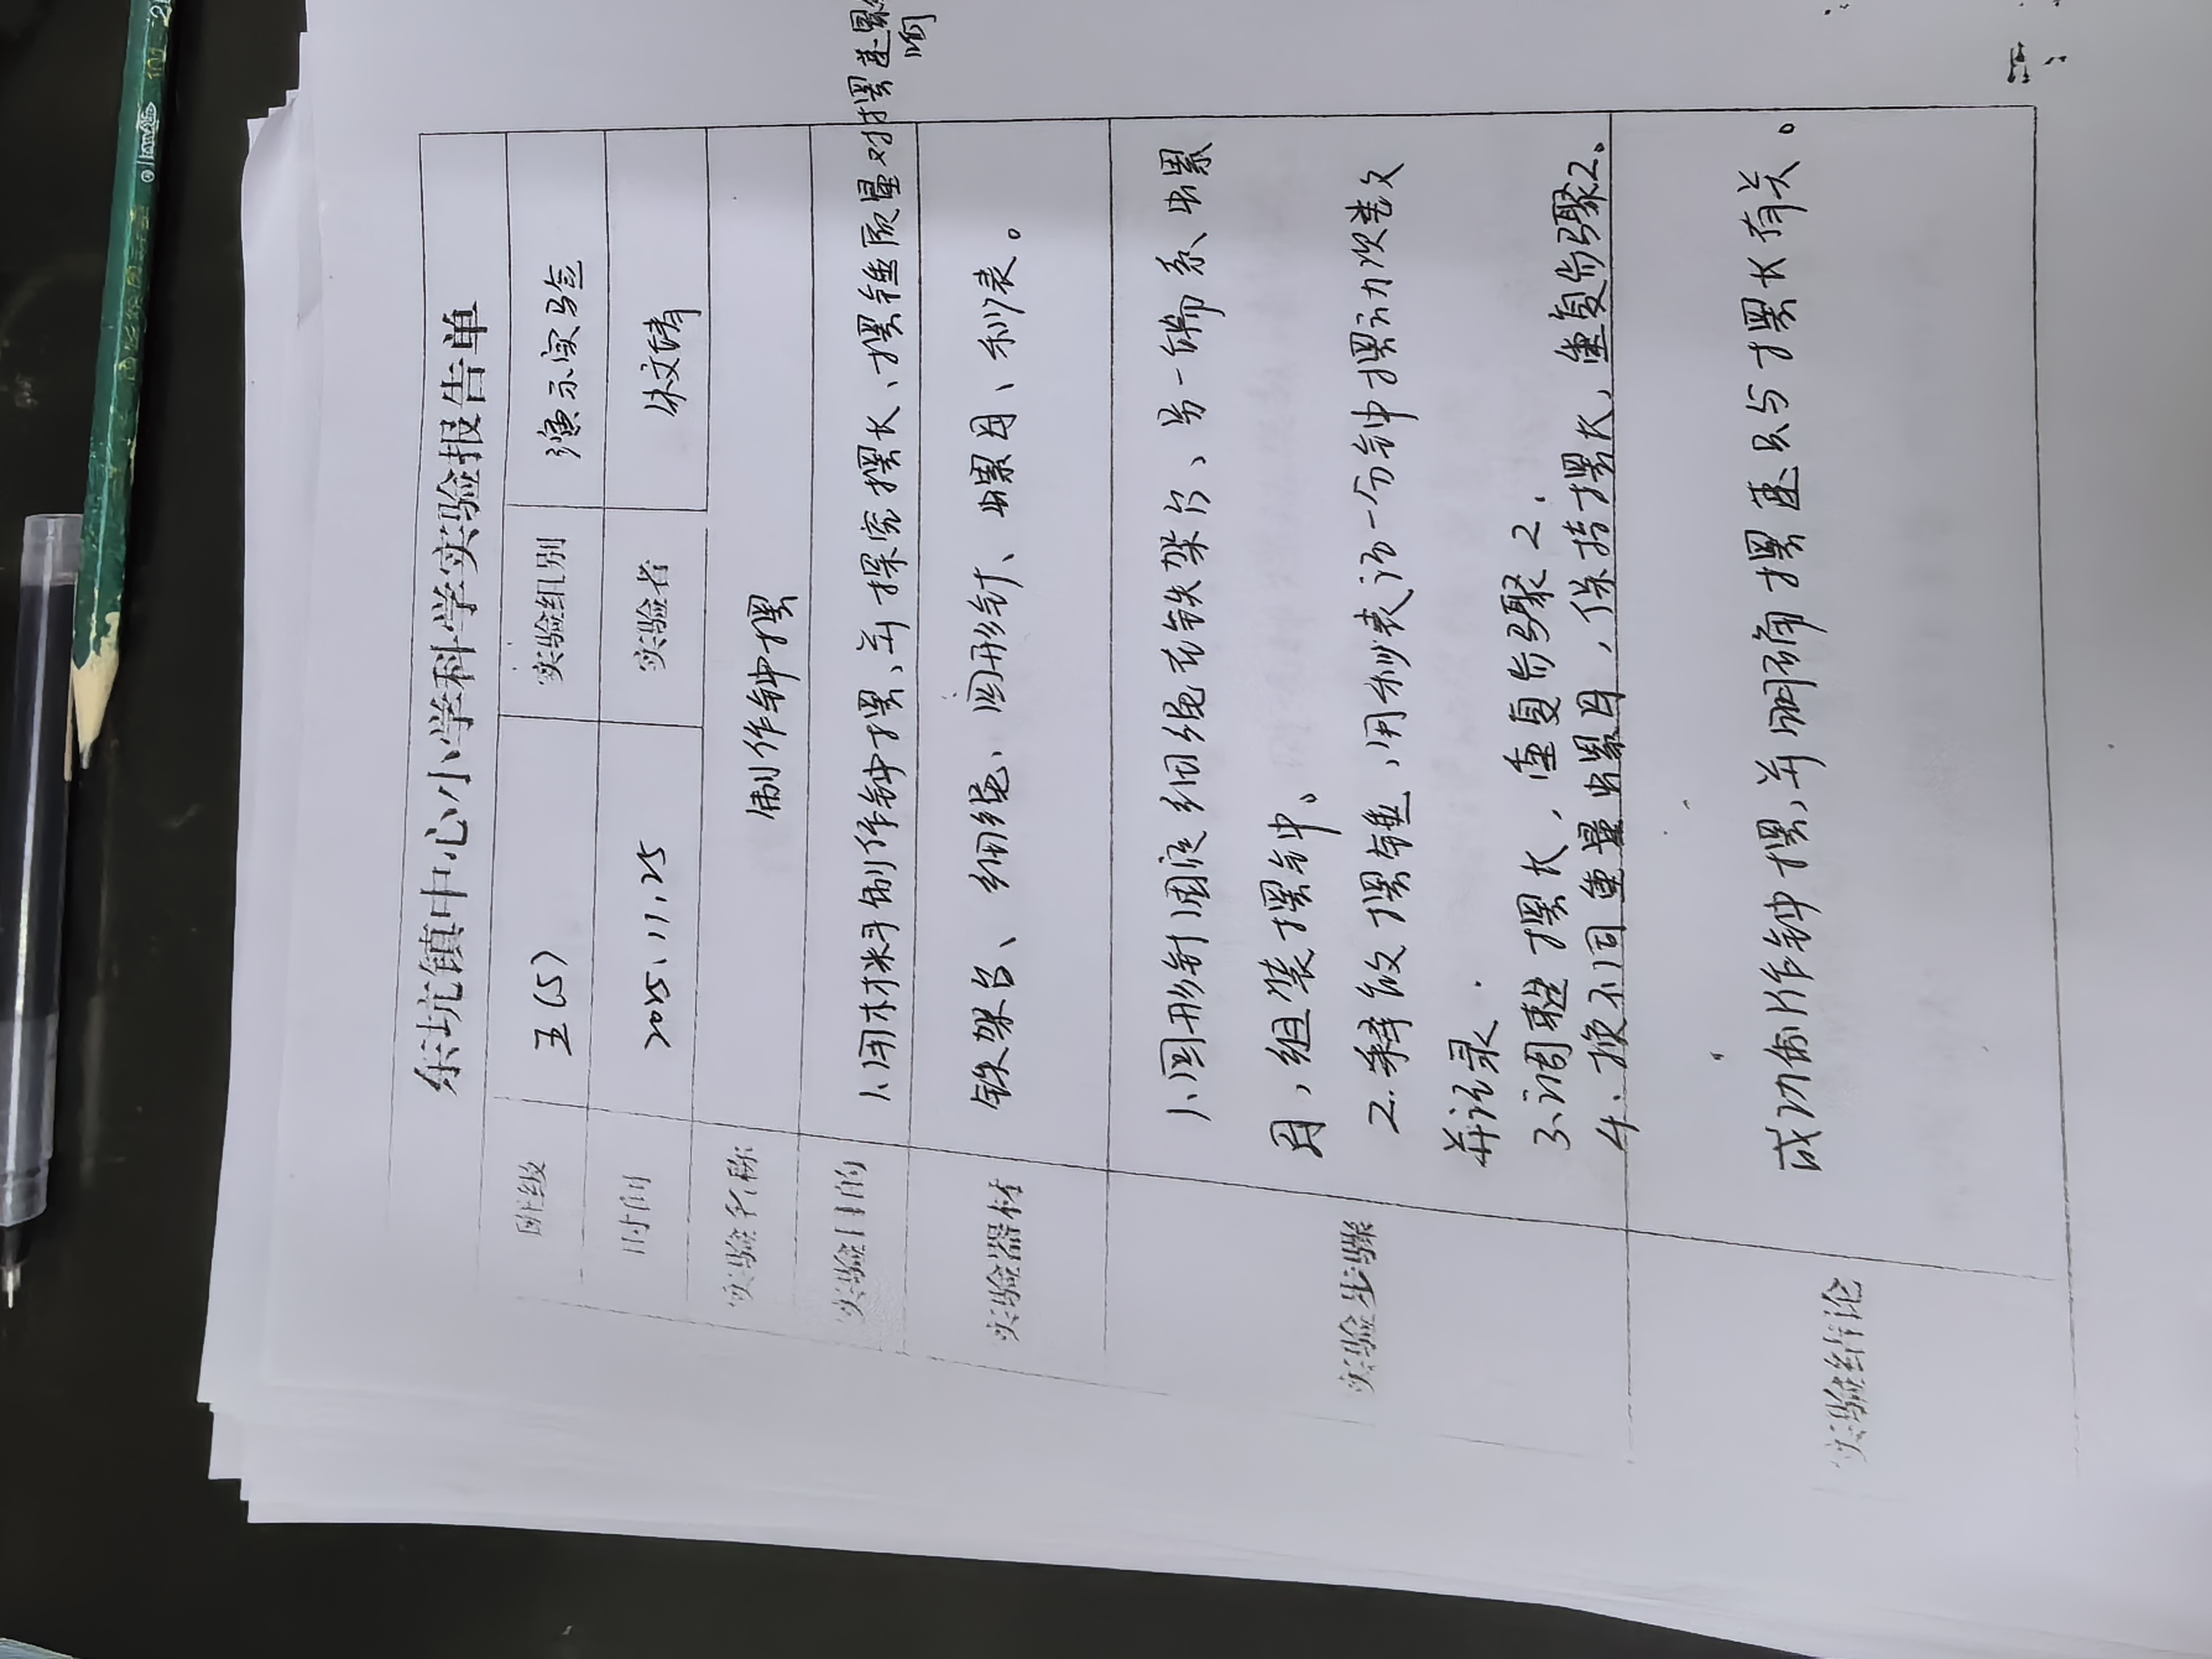 东坑镇中心小学科学实验报告单
班级 五(5) 实验组别 演示实验
时间 2025.11.25 实验者 朱文靖
实验名称 制作钟摆
实验目的 1.用材料制作钟摆、并探究摆长、摆锤质量对摆速影
响
实验器材 铁架台、细绳、回形针、螺母、秒表。
实验步骤
1.回形针固定细绳在铁架台、另一端系螺
母，组装摆钟。
2.释放摆锤，用秒表记一分钟摆动次数
并记录.
3.调整摆长，重复步骤2.
4.换不同重量螺母，保持摆长，重复步骤2。
实验结论 成功制作钟摆，并明确摆速只与摆长有关。